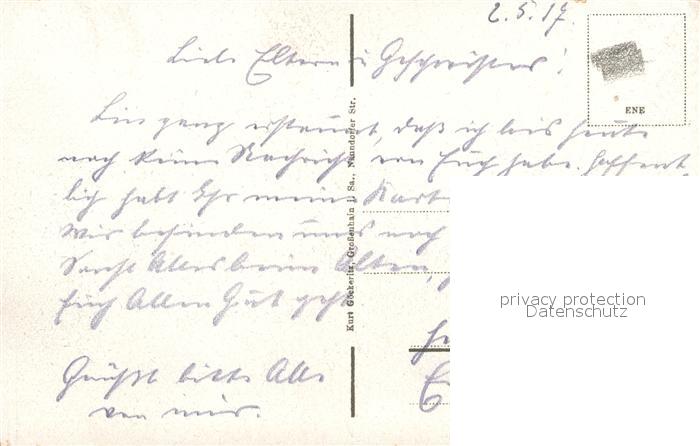 2.5.17.
Liebe Eltern u Geschwister!
Bin ganz erstaunt, daß ich bis heute
noch keine Nachricht von Euch habe. Hoffent
lich habt Ihr meine Kart
Wir befinden uns noch
Sonst Alles beim Alten,
Euch Allen Gut geh
Grüßt bitte Alle
von mir.
ENE
Kurt Göckeritz, Großenhain i. Sa., Naundorfer Str.
privacy protection
Datenschutz